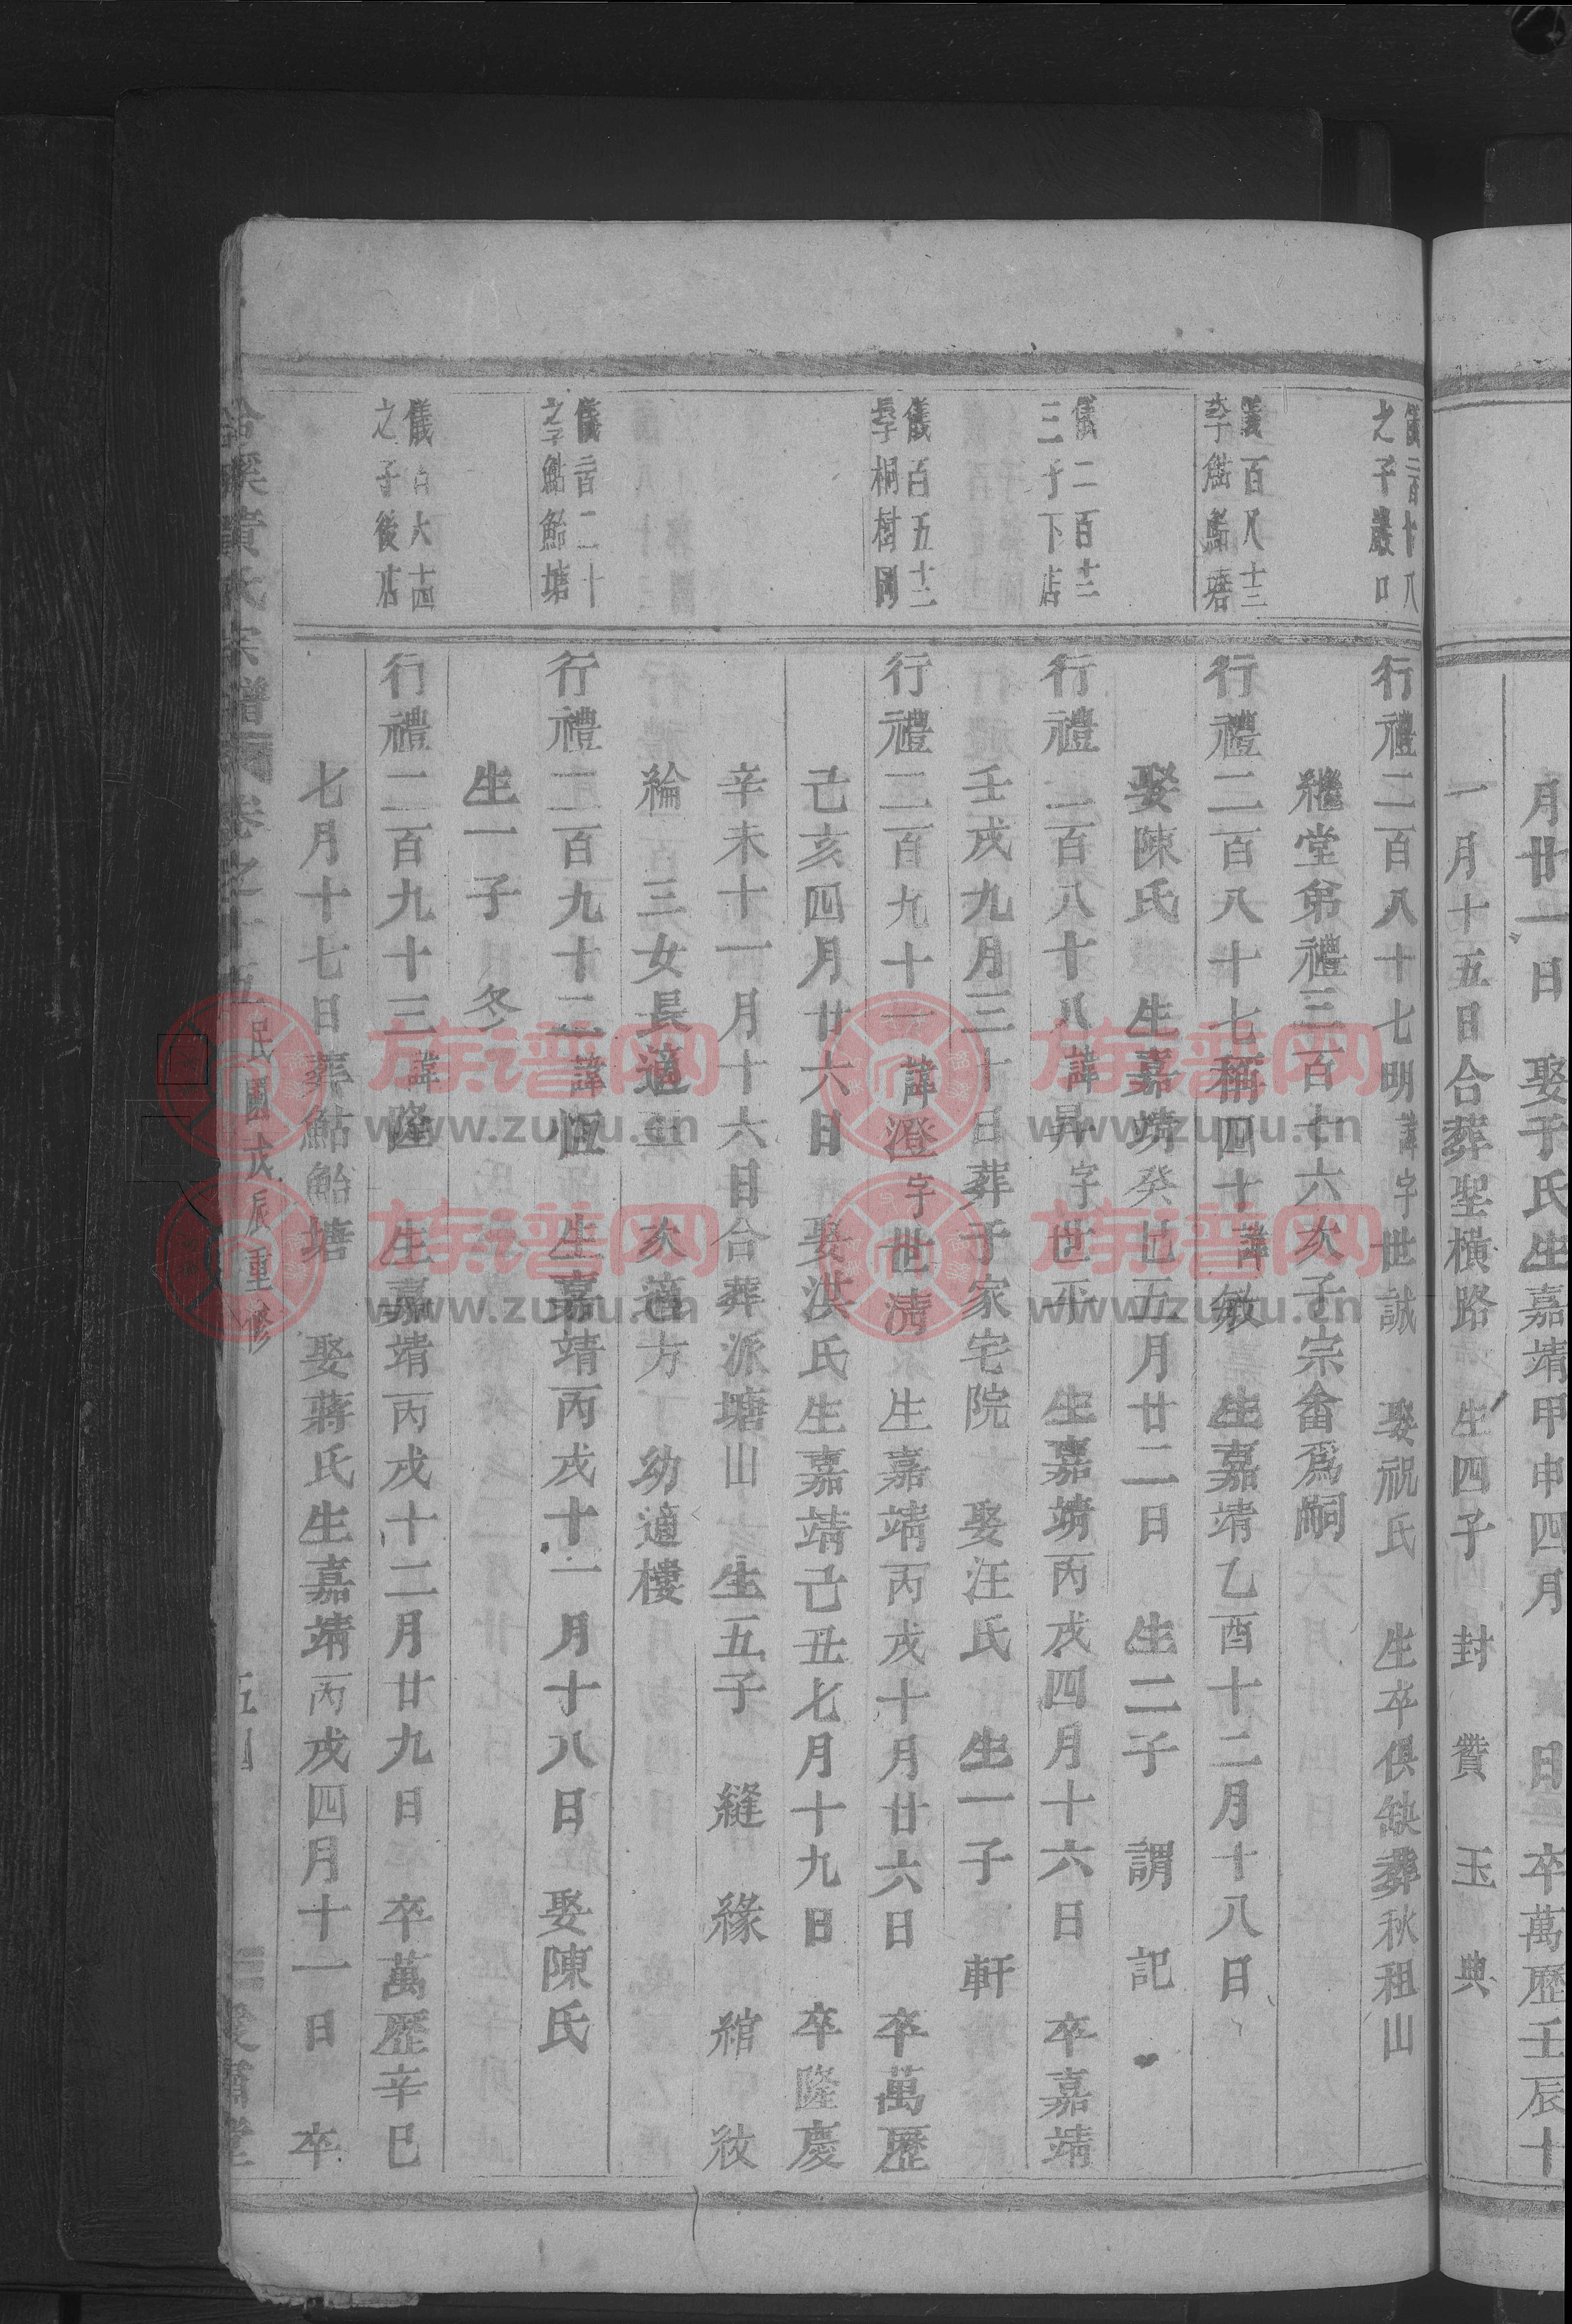 月廿一日　娶于氏生嘉靖甲申四月　日　卒萬歷壬辰十
一月十五日合葬聖橫路　生四子　封　贊　玉　典
儀二百十八
之子嚴口
行禮二百八十七明諱字世誠　娶祝氏　生卒俱缺葬秋租山
繼堂弟禮三百十六次子宗畬爲嗣
儀百八十三
子鮎鮐塘
行禮二百八十七稱四十諱敏　生嘉靖乙酉十二月十八日
娶陳氏　生嘉靖癸丑五月廿二日　生二子　謂　記
儀二百十三
三子下店
行禮二百八十八諱昇字世平　生嘉靖丙戌四月十六日　卒嘉靖
壬戌九月三十日葬于家宅院　娶汪氏　生一子　軒
儀百五十二
長子桐樹岡
行禮二百九十一諱澄字世淸　生嘉靖丙戌十月廿六日　卒萬歷
己亥四月廿六日　娶洪氏生嘉靖己丑七月十九日　卒隆慶
辛未十一月十六日合葬派塘山　生五子　縫　緣　綰　紋
綸　三女長適　次適方　幼適樓
儀二百二十
之子鮎鮐塘
行禮二百九十二諱恆　生嘉靖丙戌十一月十八日　娶陳氏
生一子　冬
儀百六十四
之子後店
行禮二百九十三諱隆　生嘉靖丙戌十二月廿九日　卒萬歷辛巳
七月十七日葬鮎鮐塘　娶蔣氏生嘉靖丙戌四月十一日　卒
黃氏宗譜　卷之十五　民國戊辰重修
族谱网
www.zupu.cn
族谱网
www.zupu.cn
族谱网
www.zupu.cn
族谱网
www.zupu.cn